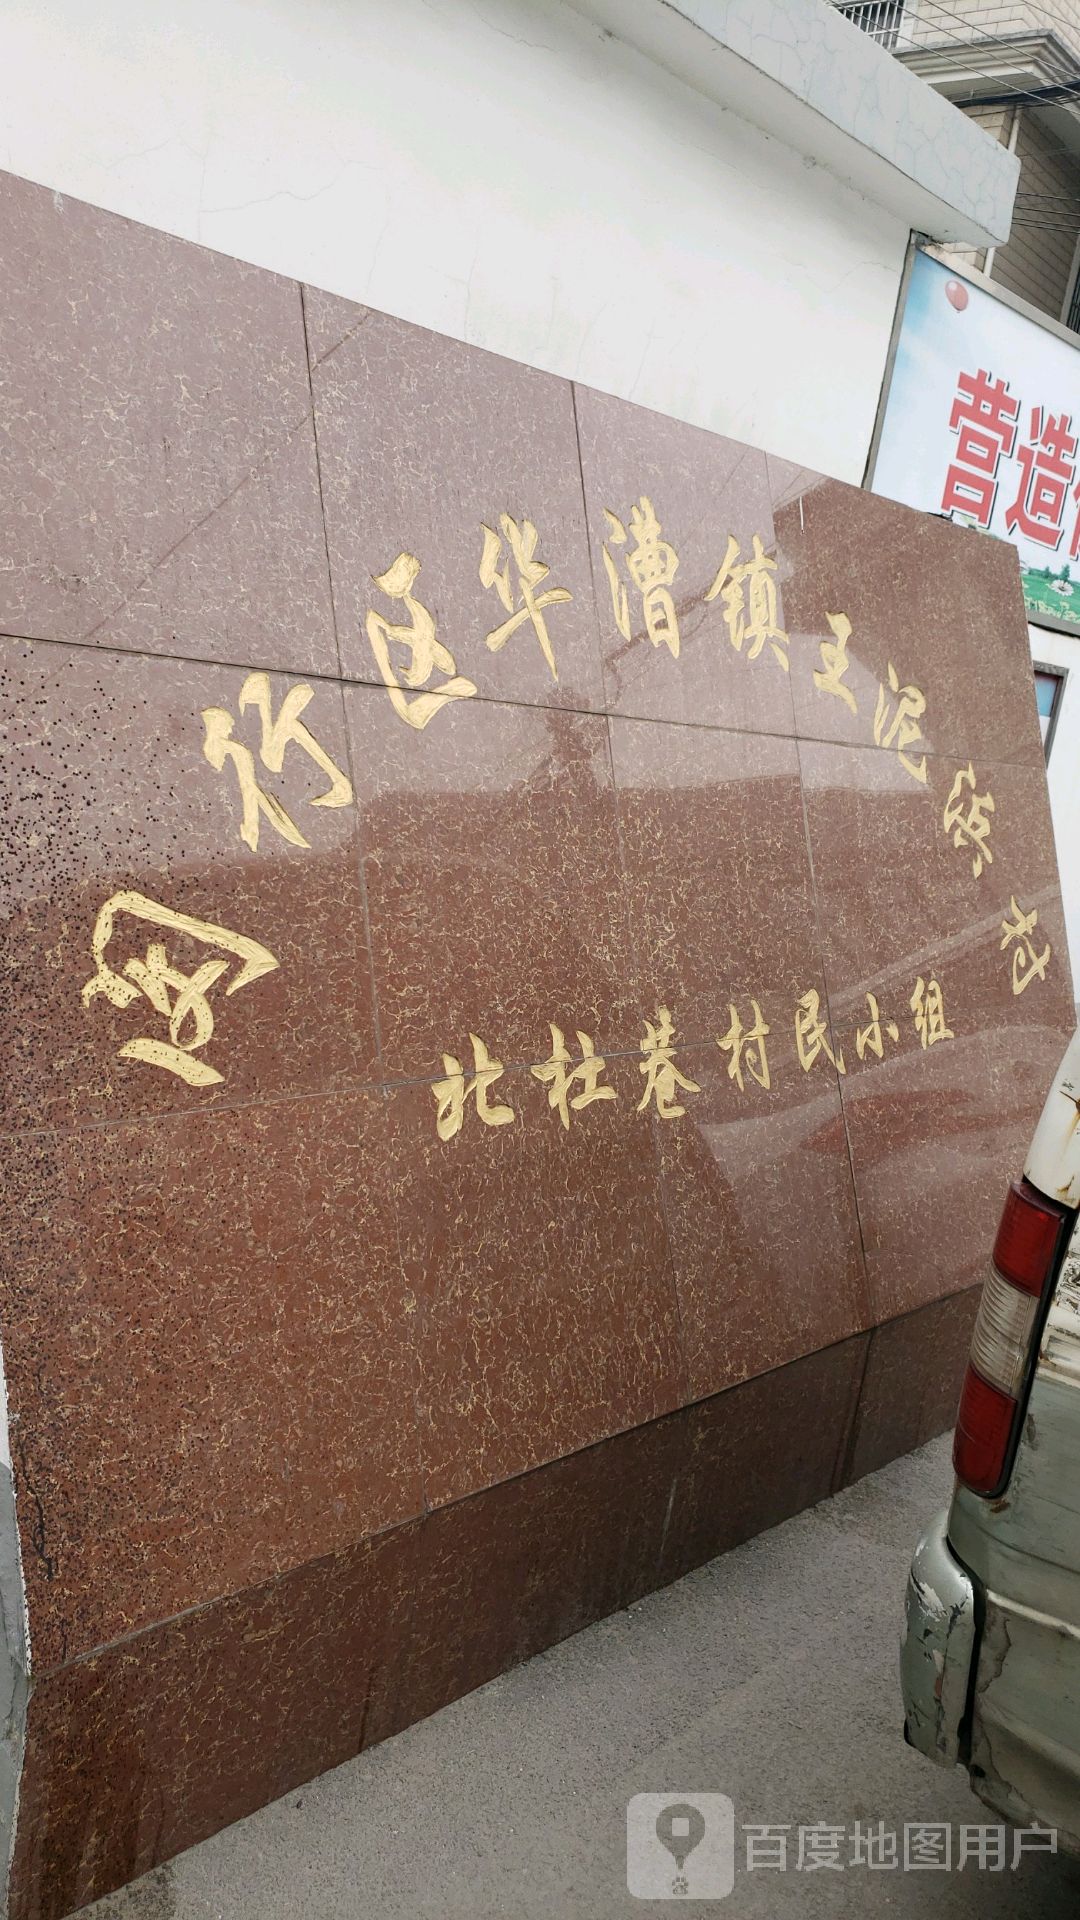 闵行区华漕镇王泥浜村
北杜巷村民小组
营造
百度地图用户